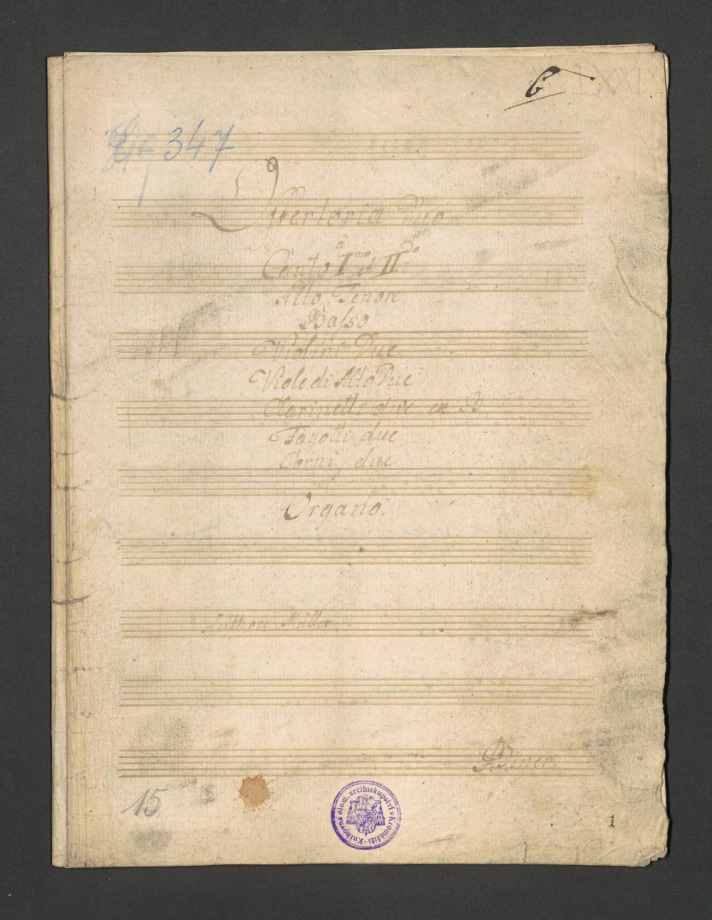 6
347
Offertoria Duo
à
Canto I^mo et II^do
Alto Tenore
Basso
Violini Due
Viole di Alto Due
Clarinetti due ex B
Fagotti due
Corni due
Organo.
Authore Müller
15
Knihovna olom. arcibiskupství v Kroměříži
1